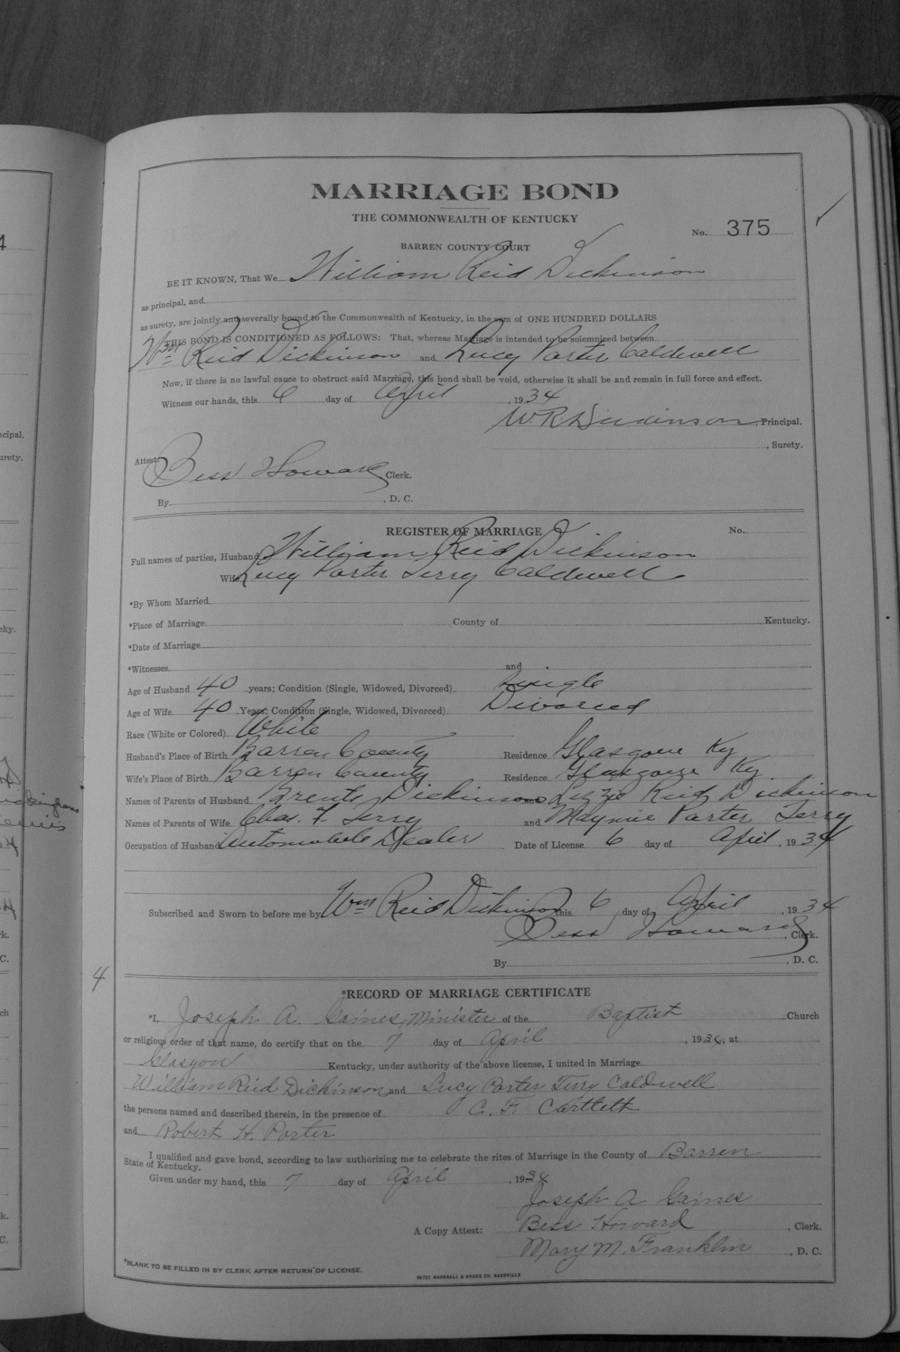 MARRIAGE BOND
THE COMMONWEALTH OF KENTUCKY
No. 375
BARREN COUNTY COURT
BE IT KNOWN, That We William Reid Dickinson
as principal, and
as surety, are jointly and severally bound to the Commonwealth of Kentucky, in the sum of ONE HUNDRED DOLLARS
THIS BOND IS CONDITIONED AS FOLLOWS: That, whereas Marriage is intended to be solemnized between
Wm Reid Dickinson and Lucy Porter Caldwell
Now, if there is no lawful cause to obstruct said Marriage, this bond shall be void, otherwise it shall be and remain in full force and effect.
Witness our hands, this 6 day of April, 1934
W R Dickinson, Principal.
, Surety.
Attest:
Bess Howard Clerk.
By , D. C.
REGISTER OF MARRIAGE No.
Full names of parties, Husband William Reid Dickinson
Wife Lucy Porter Terry Caldwell
*By Whom Married
*Place of Marriage County of Kentucky.
*Date of Marriage
*Witnesses and
Age of Husband 40 years; Condition (Single, Widowed, Divorced) Single
Age of Wife 40 Years; Condition (Single, Widowed, Divorced) Divorced
Race (White or Colored) White
Husband's Place of Birth Barren County Residence Glasgow Ky
Wife's Place of Birth Barren County Residence Glasgow Ky
Names of Parents of Husband Brents Dickinson Lizzie Reid Dickinson
Names of Parents of Wife Chas. F. Terry and Maymie Porter Terry
Occupation of Husband Automobile Dealer Date of License 6 day of April, 1934
Subscribed and Sworn to before me by Wm Reid Dickinson this 6 day of April, 1934
Bess Howard, Clerk.
By , D. C.
4
*RECORD OF MARRIAGE CERTIFICATE
*I, Joseph A. Gaines, Minister of the Baptist Church
or religious order of that name, do certify that on the 7 day of April, 1934, at
Glasgow Kentucky, under authority of the above license, I united in Marriage
William Reid Dickinson and Lucy Porter Terry Caldwell
the persons named and described therein, in the presence of C. F. Cartlett
and Robert H. Porter
I qualified and gave bond, according to law authorizing me to celebrate the rites of Marriage in the County of Barren
State of Kentucky.
Given under my hand, this 7 day of April, 1934
Joseph A Gaines
A Copy Attest: Bess Howard, Clerk.
Mary M. Franklin, D. C.
*BLANK TO BE FILLED IN BY CLERK AFTER RETURN OF LICENSE.